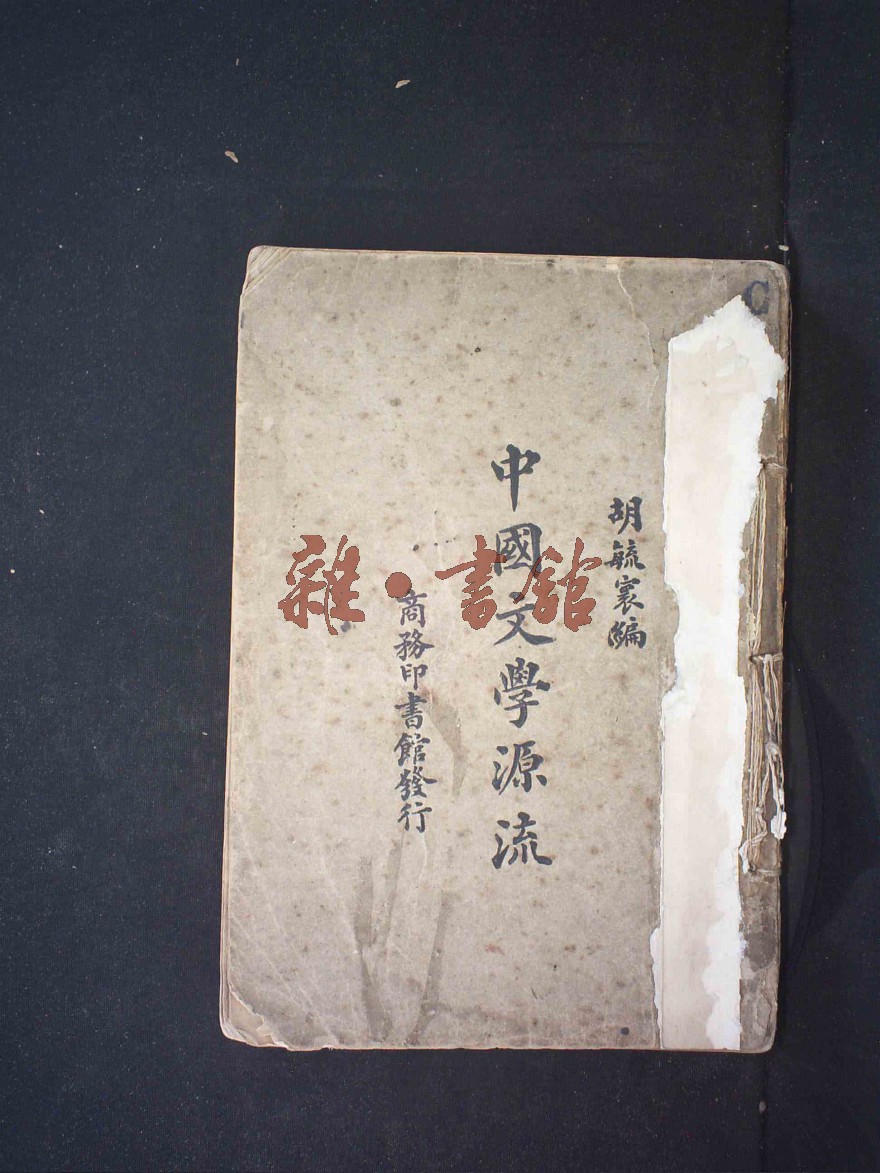 胡毓寰編
中國文學源流
商務印書館發行
雜·書館
C